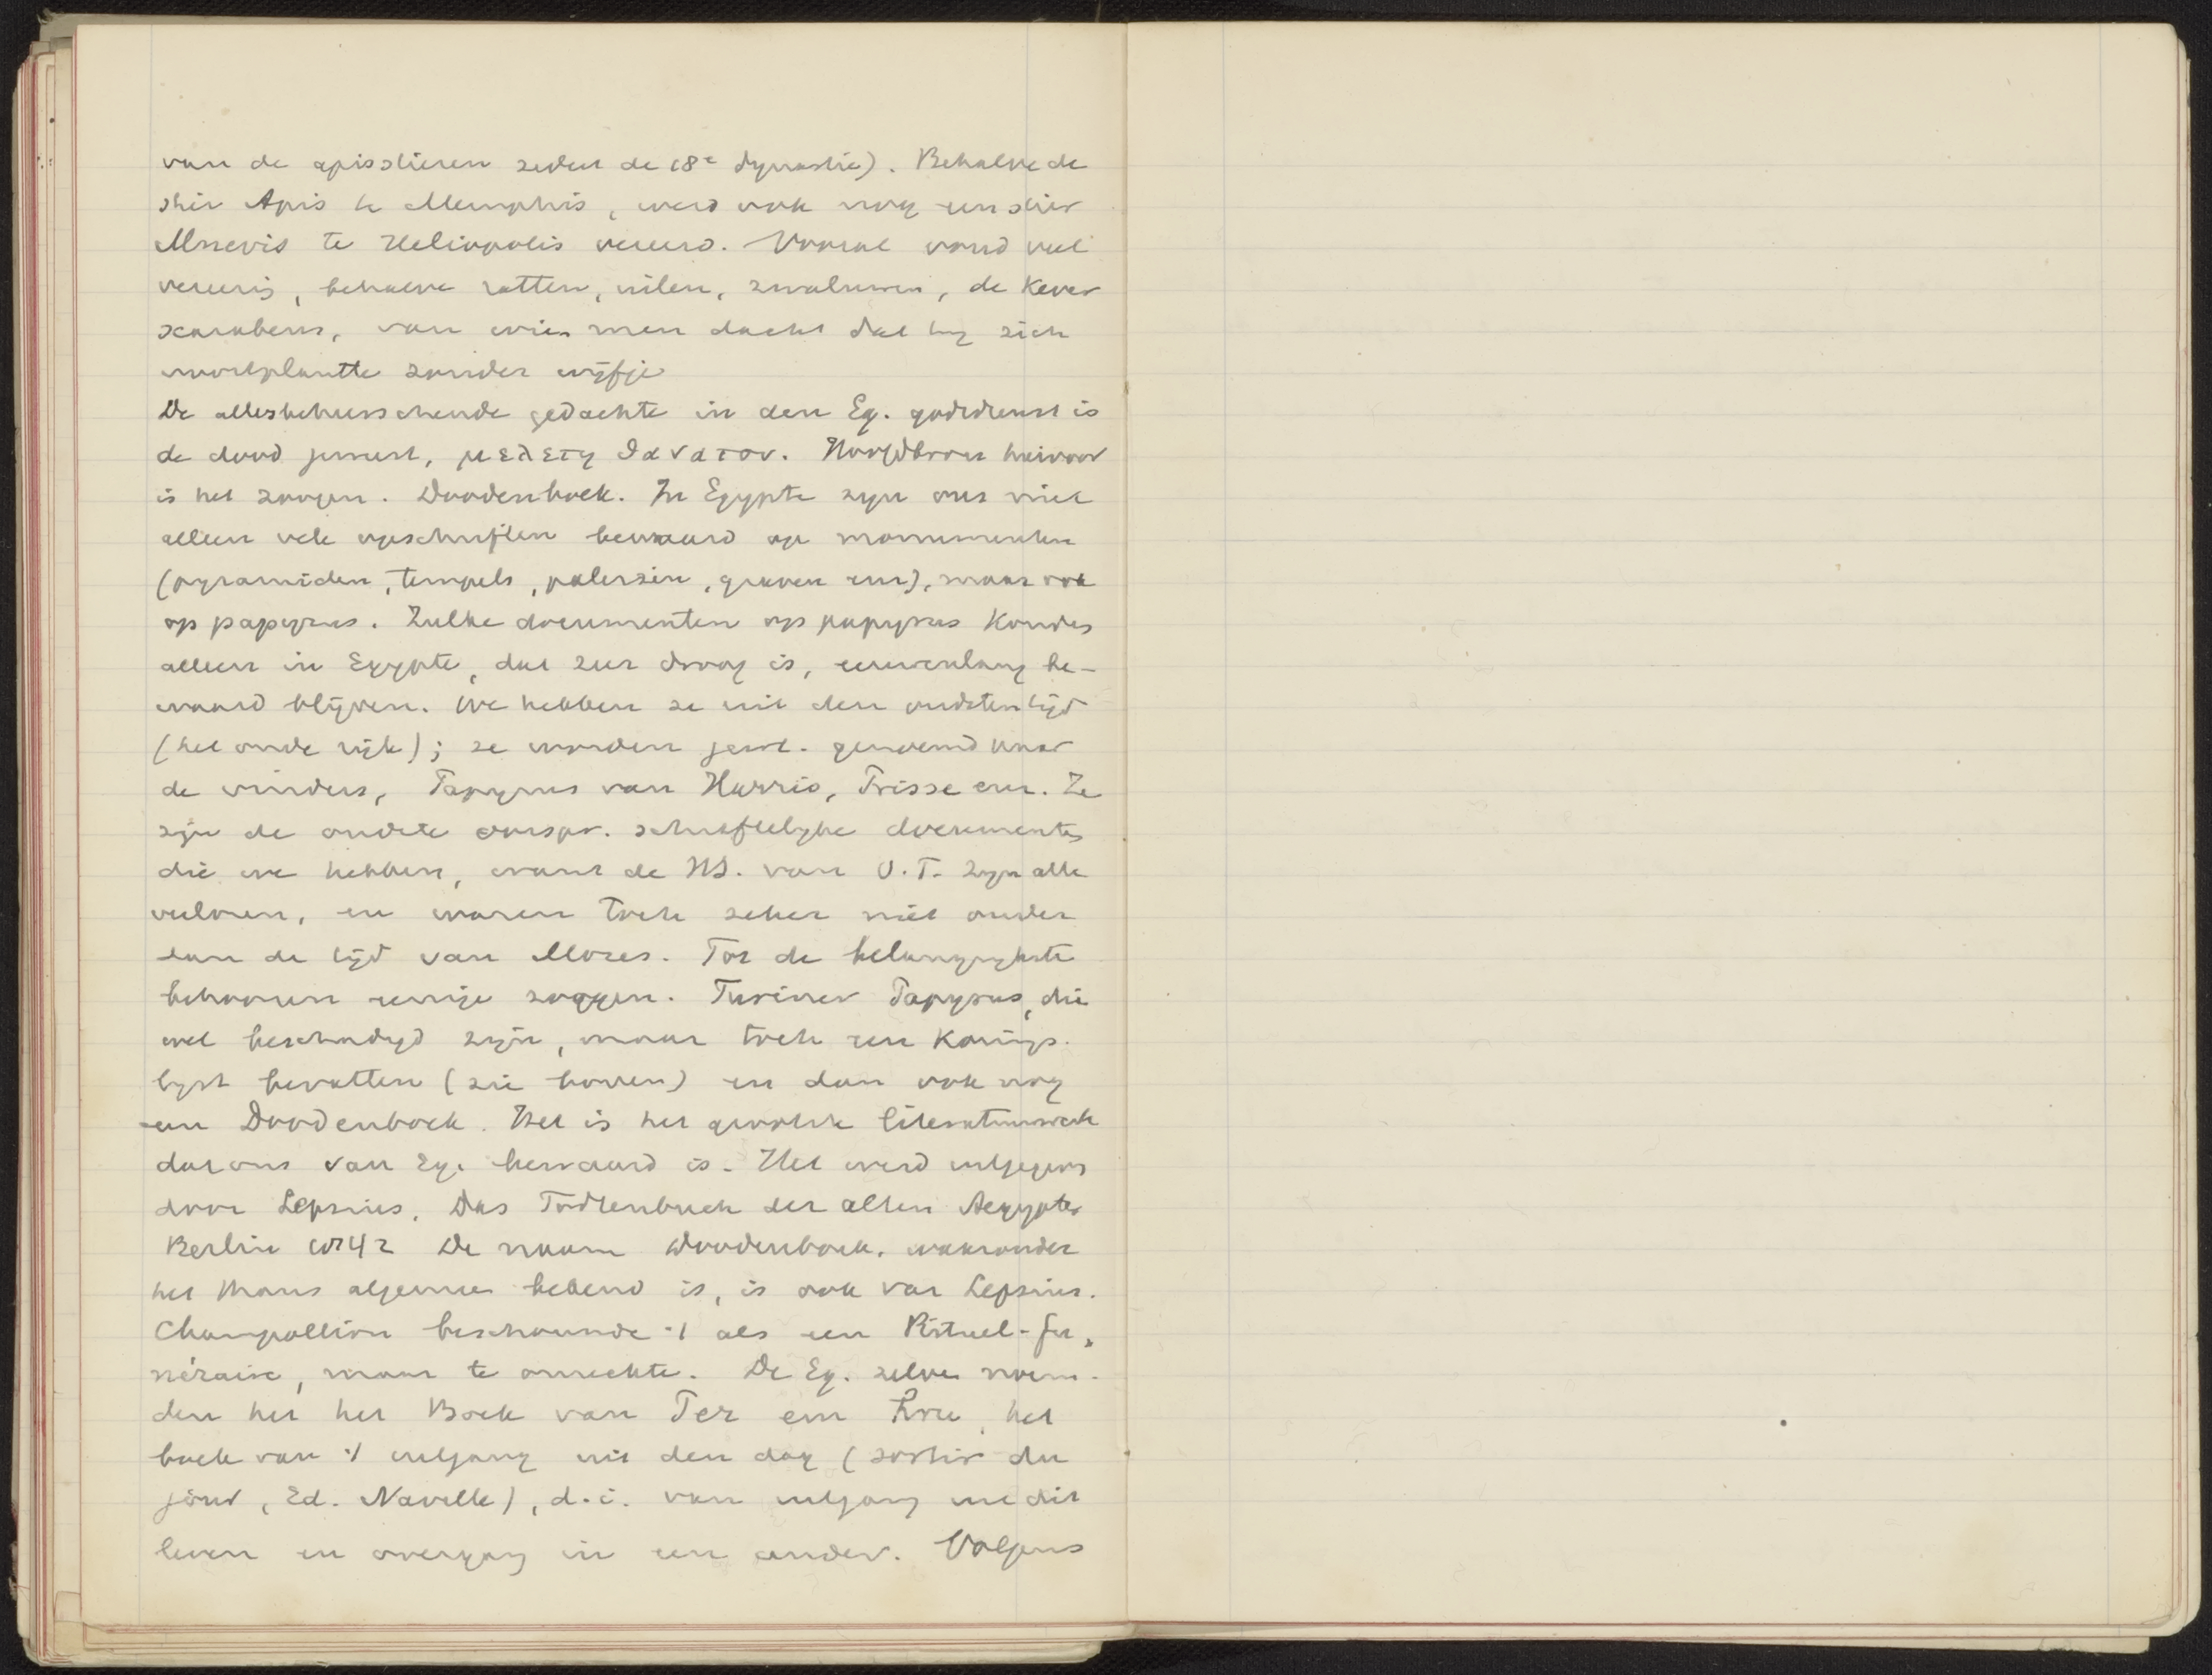 van de apisstieren sedert de 18e dynastie). Behalve de
stier Apis te Memphis, werd ook nog een stier
Mnevis te Heliopolis vereerd. Vooral vond veel
vereering, behalve ratten, uilen, zwaluwen, de Kever
scarabeus, van wien men dacht dat hy zich
voortplantte zonder wijfje
De allesbeheerschende gedachte in den Eg. godsdienst is
de dood juist, μελετη θανατου. Hoofdbron hiervoor
is het zoogen. Doodenboek. In Egypte zyn ons niet
alleen vele opschriften bewaard op monumenten
(pyramiden, tempels, paleizen, graven enz), maar ook
op papyrus. Zulke documenten op papyrus konden
alleen in Egypte, dat zeer droog is, eeuwenlang be-
waard blijven. We hebben ze uit den oudsten tijd
(het oude rijk); ze worden gew. genoemd naar
de vinders, Papyrus van Harris, Prisse enz. Ze
zijn de oudste oorspr. schriftelyke documenten
die we hebben, want de HS. van O.T. zyn alle
verloren, en waren toch zeker niet ouder
dan de tijd van Mozes. Tot de belangrykste
behooren eenige zoggen. Turiner Papyrus, die
wel beschadigd zijn, maar toch een Konings-
lyst bevatten (zie boven) en dan ook nog
een Doodenboek. Het is het grootste literatuurwerk
dat ons van Eg. bewaard is. Het werd uitgegeven
door Lepsius, Das Todtenbuch der alten Aegypter
Berlin 1842 De naam Doodenboek, waaronder
het thans algemeen bekend is, is ook van Lepsius.
Champollion beschouwde 't als een Rituel-fu-
néraire, maar te onrechte. De Eg. zelve noem-
den het het Boek van Per em hru, het
boek van 't uitgang uit den dag (sortir du
jour, Ed. Naville), d.i. van uitgang uit dit
leven en overgang in een ander. Volgens